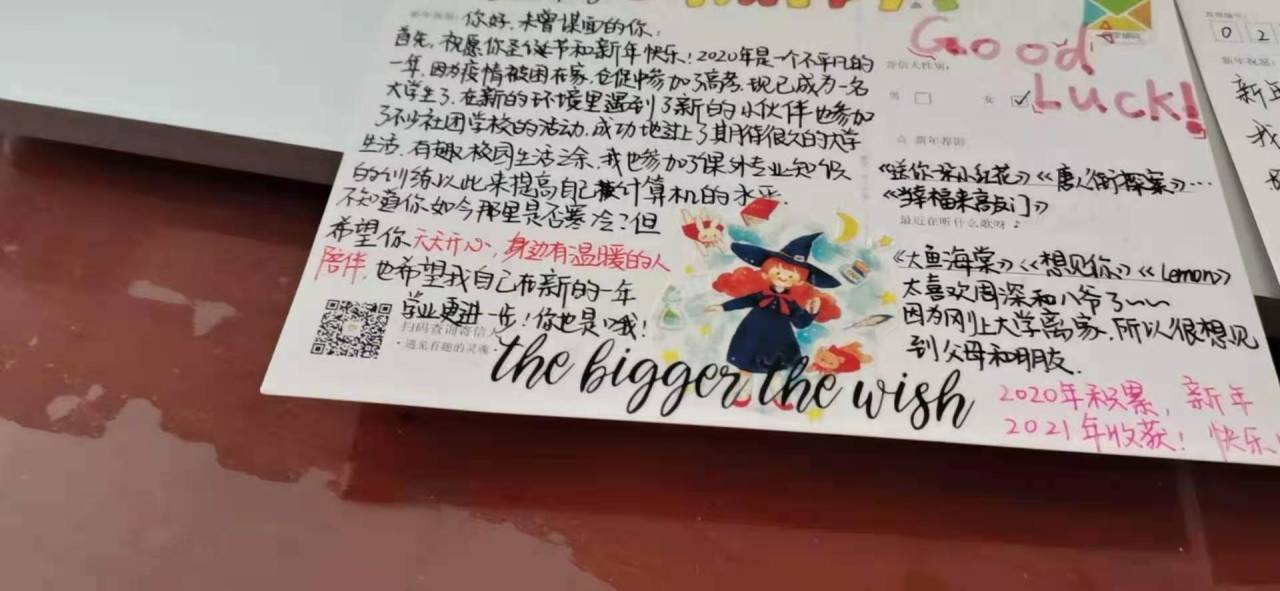 Good
Luck!
新年祝福:
你好,未曾谋面的你,
首先,祝愿你圣诞节和新年快乐!2020年是一个不平凡的
一年,因为疫情被困在家,仓促中参加了高考,现已成为一名
大学生了,在新的环境里遇到了新的小伙伴也参加
了不少社团学校的活动,成功地过上了期待很久的大学
生活,有趣校园生活之余,我也参加了课外专业知识
的训练以此来提高自己计算机的水平.
不知道你如今那里是否寒冷?但
希望你天天开心,身边有温暖的人
陪伴,也希望我自己在新的一年
学业更进一步!你也是哦!
扫码查询寄信人
·遇见有趣的灵魂·
the bigger the wish
寄信人性别:
男 □ 女 ☑
☆ 新年荐影
《送你一朵小红花》《唐人街探案》…
《当幸福来敲门》
最近在听什么歌呀♪
《大鱼海棠》《想见你》《Lemon》
太喜欢周深和八爷了~~
因为刚上大学离家,所以很想见
到父母和朋友.
2020年积累,新年
2021年收获!快乐!
0 2
新年祝愿:
我